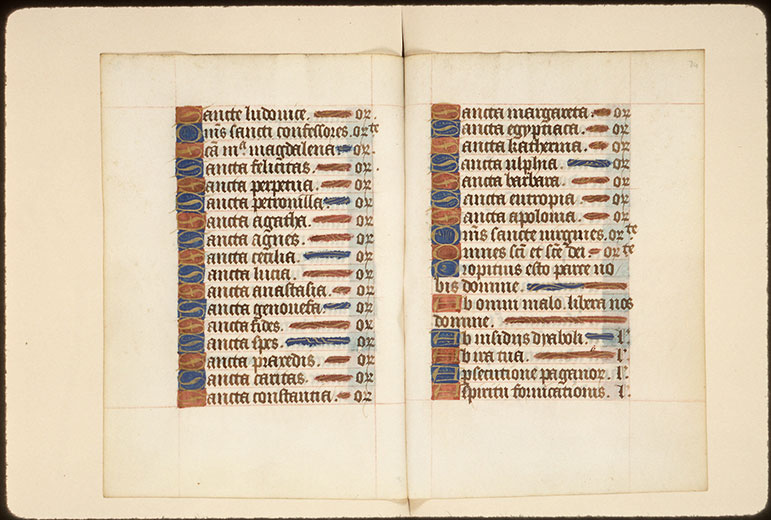 Sancte ludovice. or.
Omnes sancti confessores. orte
Sca ma magdalena or.
Sancta felicitas. or.
Sancta perpetua. or
Sancta petronilla. or
Sancta agatha. or
Sancta agnes. or
Sancta cecilia. or
Sancta lucia. or
Sancta anastasia. or
Sancta genovefa. or
Sancta fides. or
Sancta spes. or
Sancta praxedis. or
Sancta caritas. or
Sancta constantia. or
Sancta margareta. or
Sancta egyptiaca. or
Sancta katherina. or
Sancta ulphia. or
Sancta barbara. or
Sancta eutropia. or
Sancta apolonia. or
Omns sancte virgines. orte
Omnes sci et sce dei. orte
Propitius esto parce no
bis domine.
Ab omni malo. libera nos
domine.
Ab insidiis dyaboli. l.
Ab ira tua. l.
A psecutione paganor. l.
A spiritu fornicationis. l.